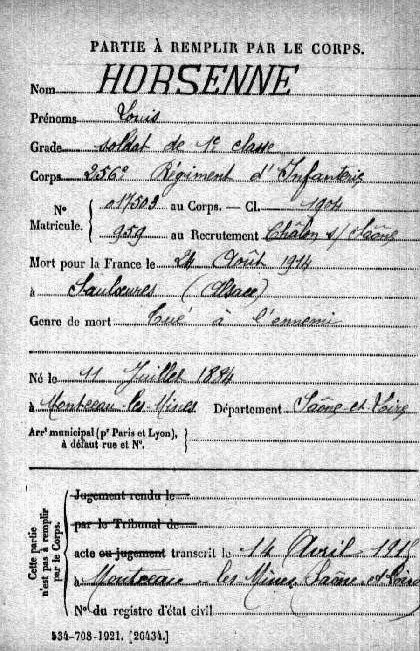 PARTIE À REMPLIR PAR LE CORPS.
Nom HORSENNE
Prénoms Louis
Grade soldat de 1e classe
Corps 256e Régiment d'Infanterie
No Matricule. 017509 au Corps. — Cl. 1904
959 au Recrutement Châlon s/ Saône
Mort pour la France le 24 Août 1914
à Saulxures (Alsace)
Genre de mort Tué à l'ennemi
Né le 11 Juillet 1884
à Montceau-les-Mines Département Saône-et-Loire
Arrt municipal (pr Paris et Lyon),
à défaut rue et No.
Cette partie
n'est pas à remplir
par le Corps.
Jugement rendu le
par le Tribunal de
acte ou jugement transcrit le 14 Avril 191
à Montceau-les Mines Saône et Loire
No du registre d'état civil
534-708-1921. [26434.]